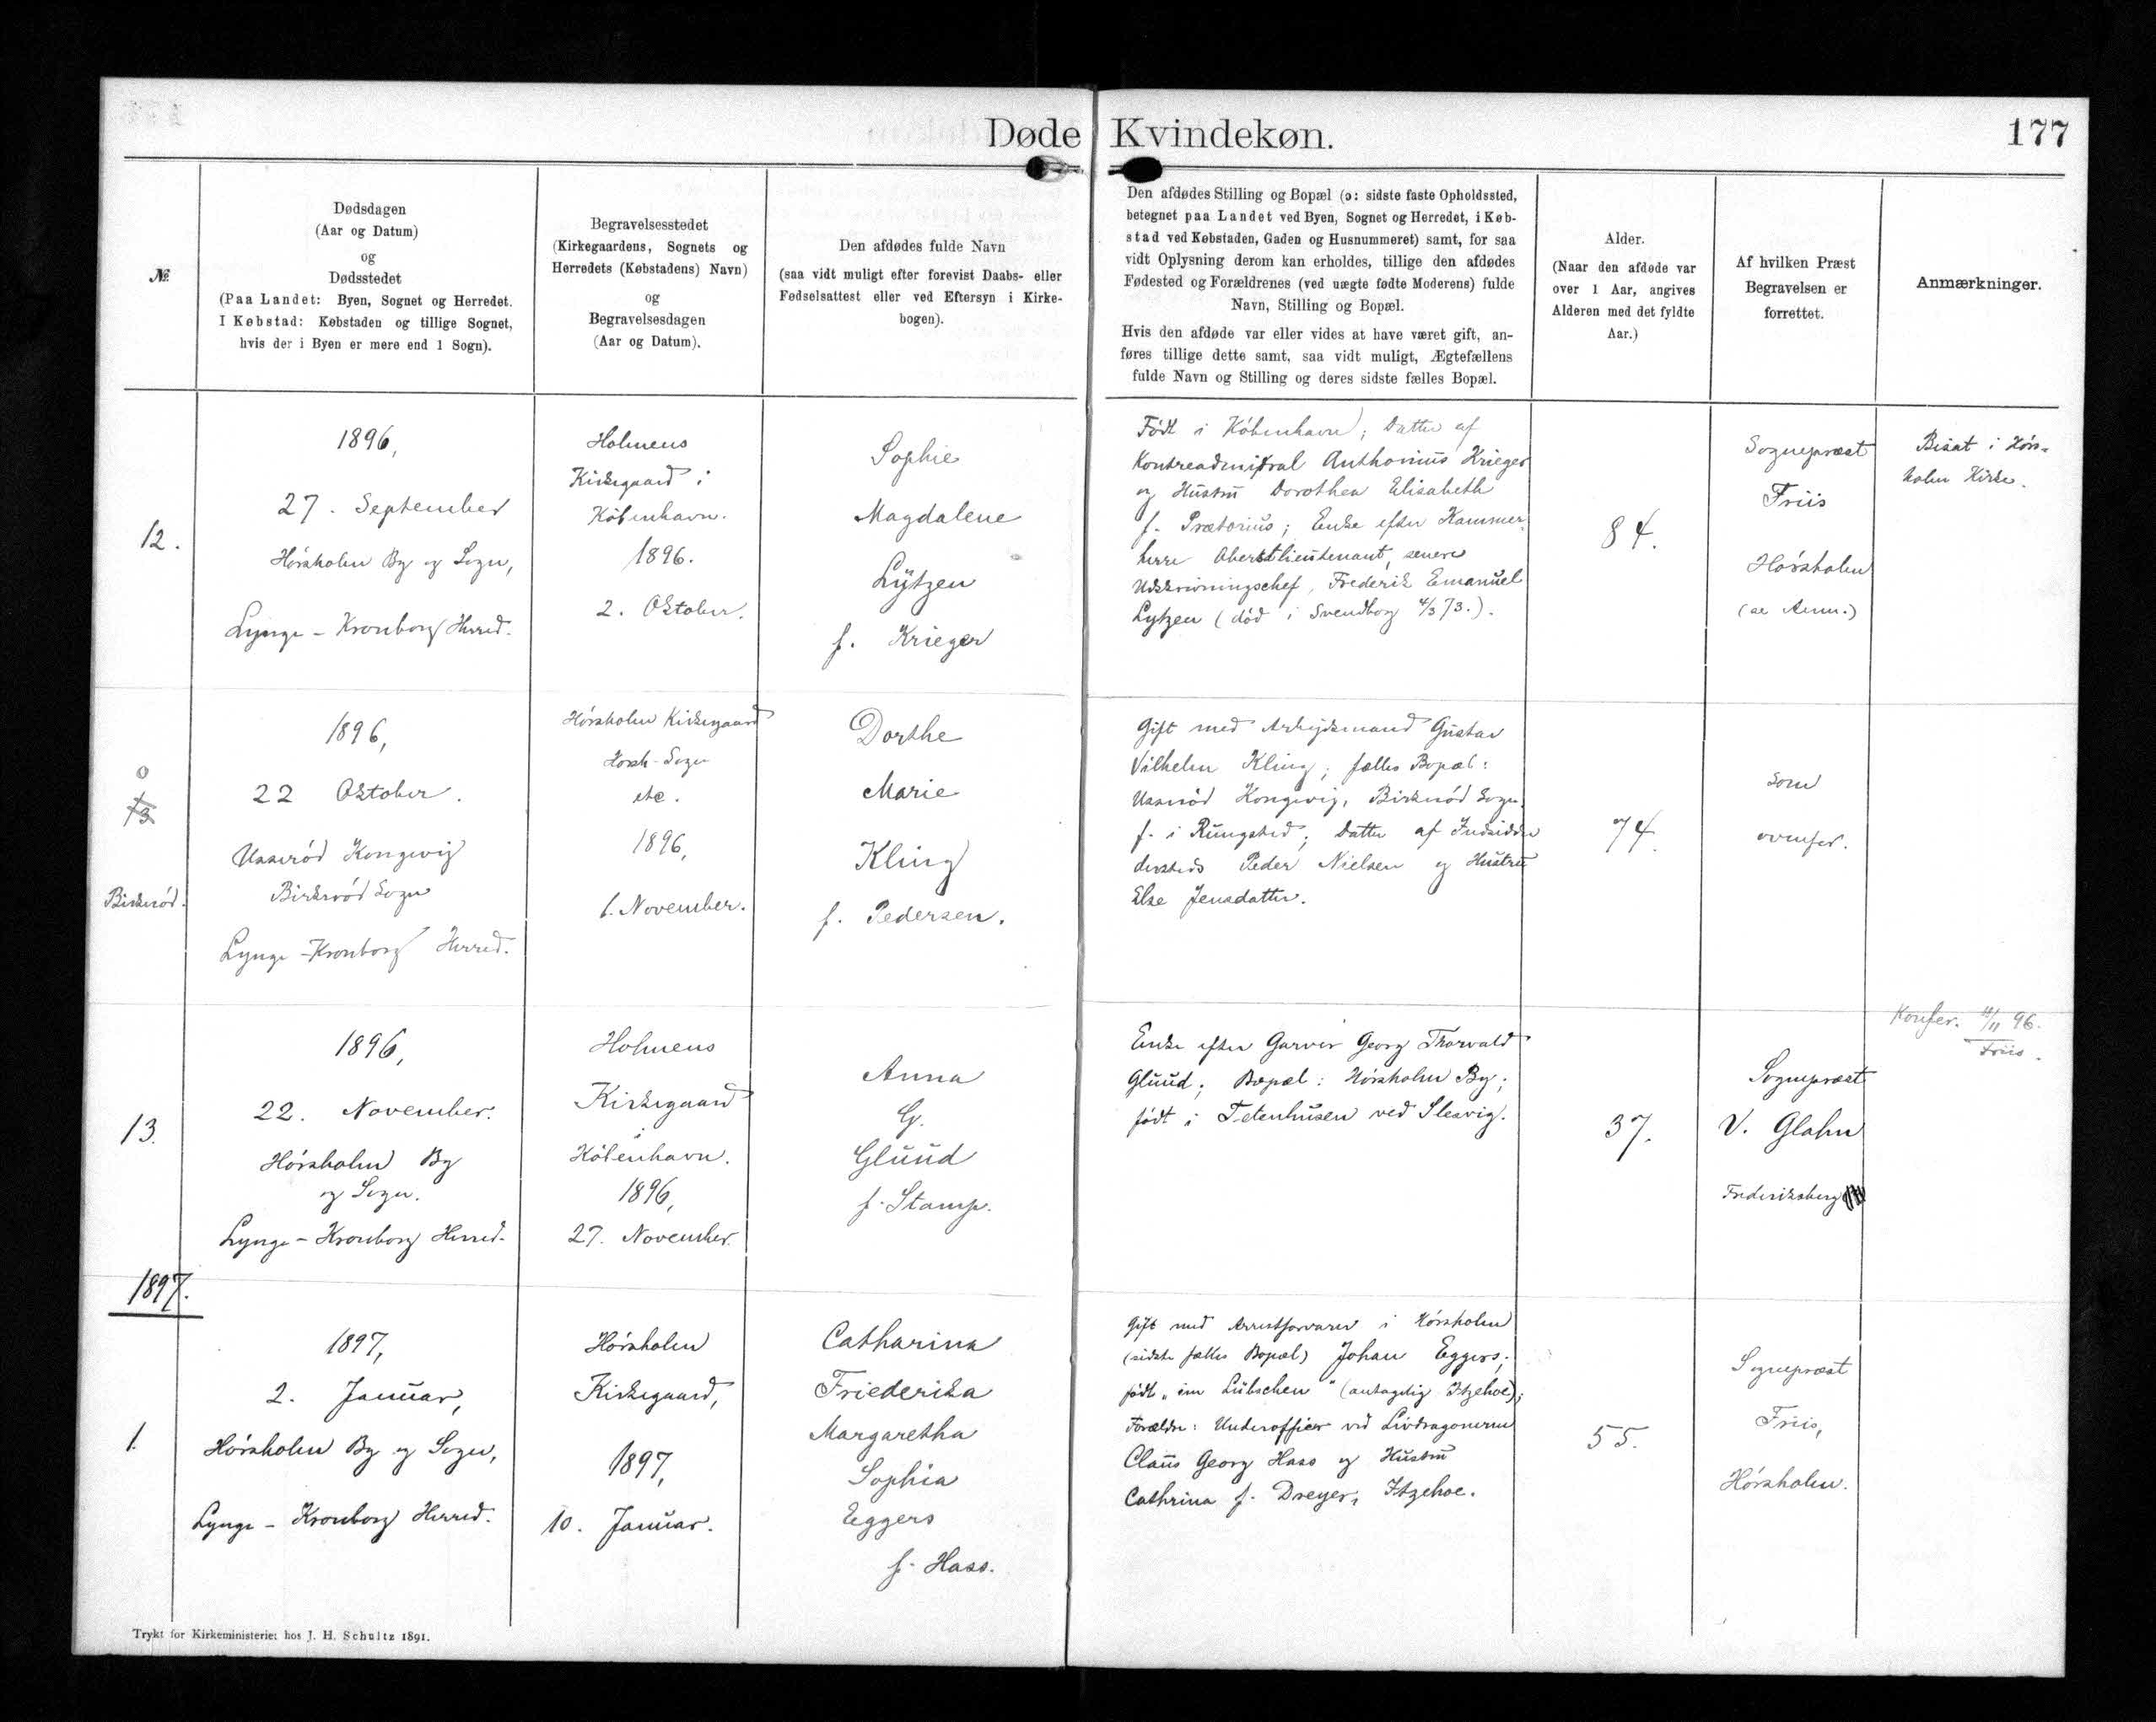 Døde Kvindekøn.
177
№
Dødsdagen
(Aar og Datum)
og
Dødsstedet
(Paa Landet: Byen, Sognet og Herredet.
I Købstad: Købstaden og tillige Sognet,
hvis der i Byen er mere end 1 Sogn).
Begravelsesstedet
(Kirkegaardens, Sognets og
Herredets (Købstadens) Navn)
og
Begravelsesdagen
(Aar og Datum).
Den afdødes fulde Navn
(saa vidt muligt efter forevist Daabs- eller
Fødselsattest eller ved Eftersyn i Kirke-
bogen).
Den afdødes Stilling og Bopæl (ɔ: sidste faste Opholdssted,
betegnet paa Landet ved Byen, Sognet og Herredet, i Køb-
stad ved Købstaden, Gaden og Husnummeret) samt, for saa
vidt Oplysning derom kan erholdes, tillige den afdødes
Fødested og Forældrenes (ved uægte fødte Moderens) fulde
Navn, Stilling og Bopæl.
Hvis den afdøde var eller vides at have været gift, an-
føres tillige dette samt, saa vidt muligt, Ægtefællens
fulde Navn og Stilling og deres sidste fælles Bopæl.
Alder.
(Naar den afdøde var
over 1 Aar, angives
Alderen med det fyldte
Aar.)
Af hvilken Præst
Begravelsen er
forrettet.
Anmærkninger.
12.
1896,
27. September
Hörsholm By og Sogn,
Lynge-Kronborg Herred.
Holmens
Kirkegaard i
København.
1896.
2. Oktober.
Sophie
Magdalene
Lützen
f. Krieger
Född i København; Datter af
Kontreadmiral Anthonius Krieger
og Hustru Dorothea Elisabeth
f. Prætorius; Enke efter Kammer-
herre Oberstlieutenant, senere
Udskrivningschef, Frederik Emanuel
Lytzen (död i Svendborg 4/3 73.).
84.
Sognepræst
Friis
Hörsholm
(se Anm.)
Bisat i Hörs-
holm Kirke.
0
13
Birkeröd.
1896,
22 Oktober.
Usseröd Kongevig
Birkeröd Sogn
Lynge-Kronborg Herred.
Hörsholm Kirkegaard
Horsh. Sogn
etc.
1896,
1. November.
Dorthe
Marie
Kling
f. Pedersen.
Gift med Arbejdsmand Gustav
Vilhelm Kling; fælles Bopæl:
Usseröd Kongevig, Birkeröd Sogn.
f. i Rungsted; Datter af Indsidder
dersteds Peder Nielsen og Hustru
Else Jensdatter.
74.
som
ovenfor.
Konfer. 11/11 96.
Friis.
13.
1896,
22. November.
Hörsholm By
og Sogn.
Lynge-Kronborg Herred.
Holmens
Kirkegaard
i
København.
1896,
27. November.
Anna
G.
Gluud
f. Stamp.
Enke efter Garver Georg Thorvald
Gluud; Bopæl: Hörsholm By;
födt i Tetenhusen ved Slesvig.
37.
Sognepræst
V. Glahn
Frederiksberg
1897.
1.
1897,
2. Januar,
Hörsholm By og Sogn,
Lynge-Kronborg Herred.
Hörsholm
Kirkegaard,
1897,
10. Januar.
Catharina
Friederika
Margaretha
Sophia
Eggers
f. Hass.
Gift med Arrestforvarer i Hörsholm
(sidste fælles Bopæl) Johan Eggers;
födt „im Lübschen“ (antagelig Itzehoe);
Forældre: Underofficer ved Livdragonerne
Claus Georg Hass og Hustru
Cathrina f. Dreyer, Itzehoe.
55.
Sognepræst
Friis,
Hörsholm.
Trykt for Kirkeministeriet hos J. H. Schultz 1891.